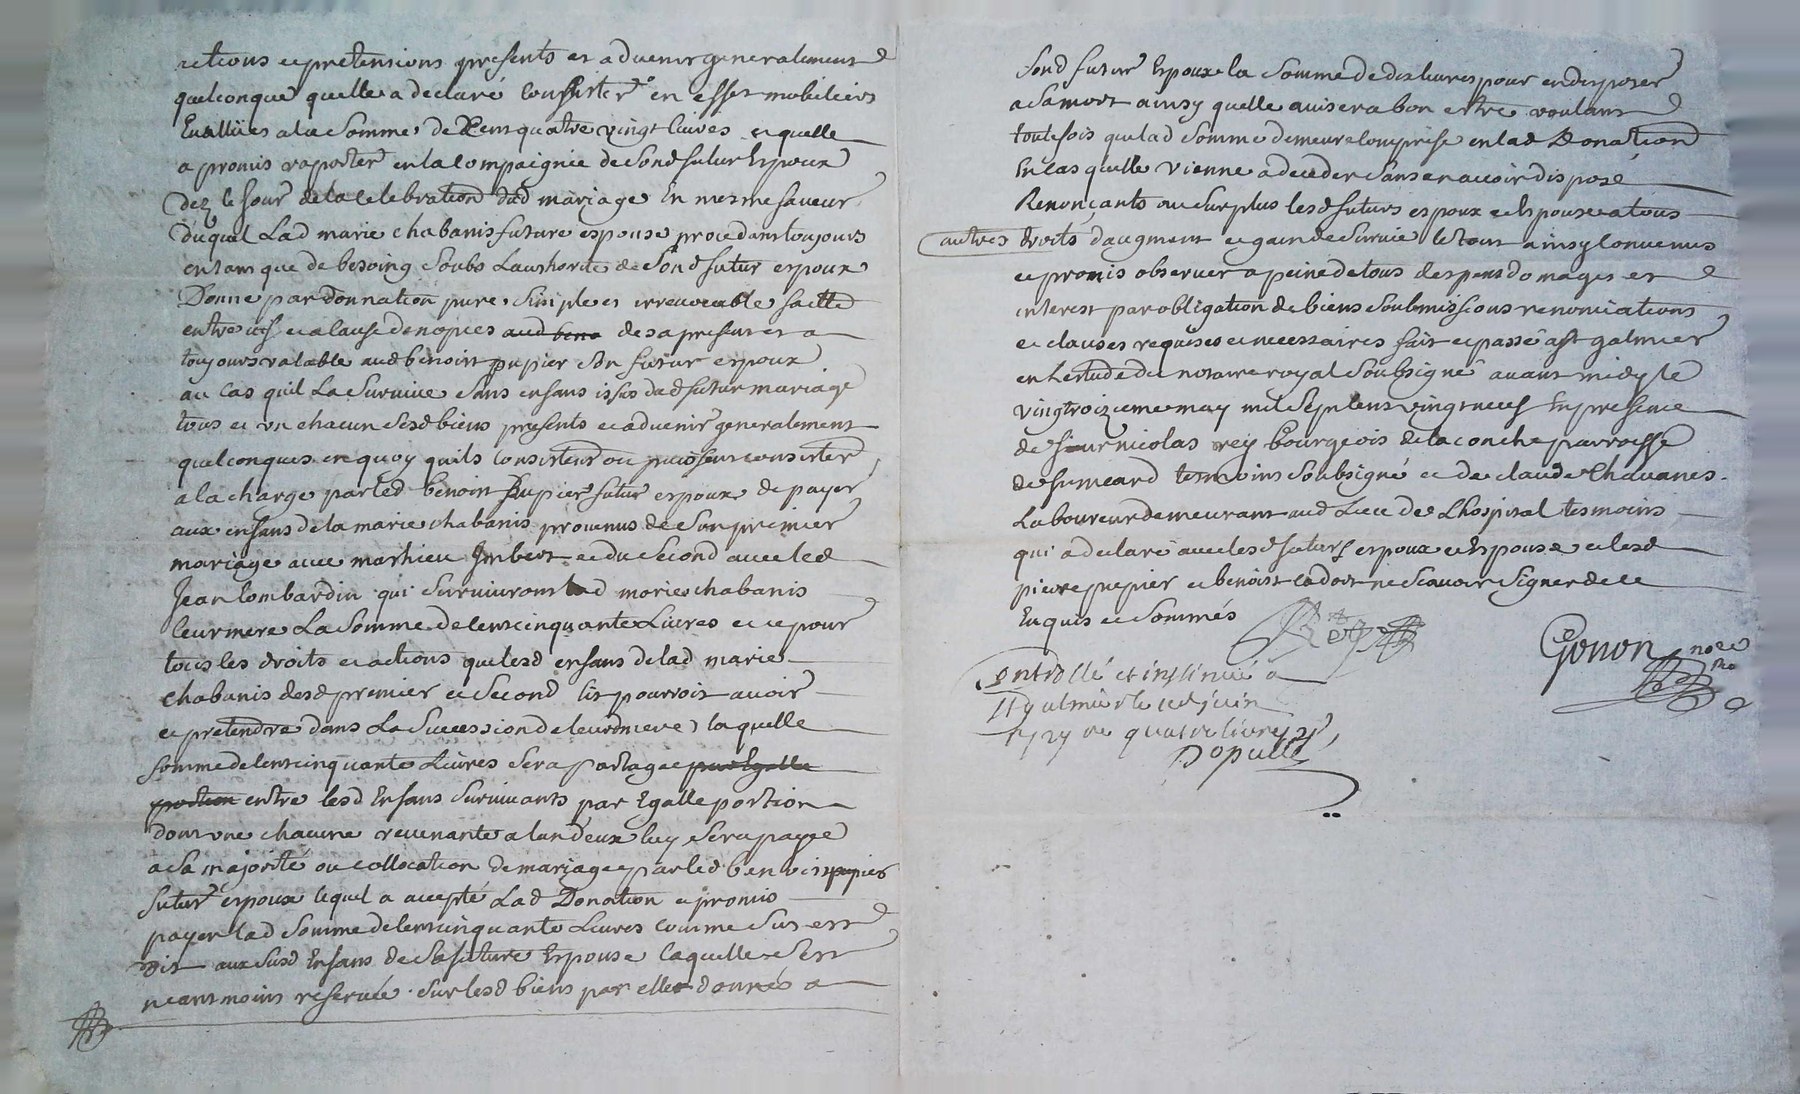 actions et pretensions presents et advenir generalement
quelconque quelle a declaré consister en effet mobiliers
Evallües a la somme de Cent quatre vingt livres et quelle
a promis raporter en la compaignie de Sond futur Espoux
dez le Jour de la celebration dud mariage En mesme faveur
duquel Lad marie chabanis future espouse procedant toujours
entant que de besoing Soubs L'authorite de Sond futur espoux
Donne par donnation pure, Simple et irrevocable faitte
entre vifs et a cause de nopces aud beno des a present et a
toujours valable aud benoist pupier Son futur espoux
au cas quil La Survive Sans enfans issus dud futur mariage
tous et un chacun Sesd biens presents et advenir generalement
quelconques en quoy quils Consistent ou puissent consister
a la charge par led benoist Pupier futur espoux de payer
aux enfans de la marie chabanis provenus de Son premier
mariage avec mathieu Imbert et du Second avec led
Jean Lombardin qui Survivront lad marie chabanis
leur mere La Somme de Cent cinquante Livres et ce pour
tous les droits et actions que lesd enfans de lad marie
chabanis desd premier et Second lit pourroit avoir
et pretendre dans La Succession de leurd mere, laquelle
Somme de Cent cinquante Livres Sera partagee par Egalle
portion entre lesd Enfans Survivants par Egalle portion
dont une chacune revenante a lun deux luy Sera payee
a Sa majorité ou collocation de mariage par led benoist pupier
futur espoux lequel a accepté Lad Donation et promis
payer lad Somme de Cent cinquante Livres comme Sus est
dit aux Susd Enfans de Sa future Espouse laquelle Sest
neantmoins reservée Sur lesd biens par elle donnés a
Sond futur Espoux la Somme de dix livres pour en disposer
a Sa mort ainsy quelle avisera bon estre voulant
toutefois que lad Somme demeure comprise en lad Donation
En cas quelle vienne a deceder Sans en avoir disposé
Renonçants au Surplus lesd futurs espoux et Espouse a tous
autres droits daugment et gain de Survie le tout ainsy Convenus
et promis observer a peine de tous despens domages et
interest par obligation de biens Soubmissions renonciations
et clauses requises et necessaires fait et passé a St galmier
en L'estude du notaire royal Soubsigné avant midy le
vingtroizieme may mil Sept Cens vingt neuf En presence
de Sieur nicolas rey Bourgeois de la conche parroisse
de fumeard tesmoins Soubsigné et de claude Chavanes
Laboureur demeurant aud Lieu de L'hospital tesmoins
qui a declaré avec lesd futurs espoux et Espouse et lesd
pierre pupier et benoist cadort ne Scavoir Signer de ce
Enquis et Sommés
Rey
Gonon no.re
Controllé et insinué a
St galmier le Juin
1729 re quatre livres
Dopulle